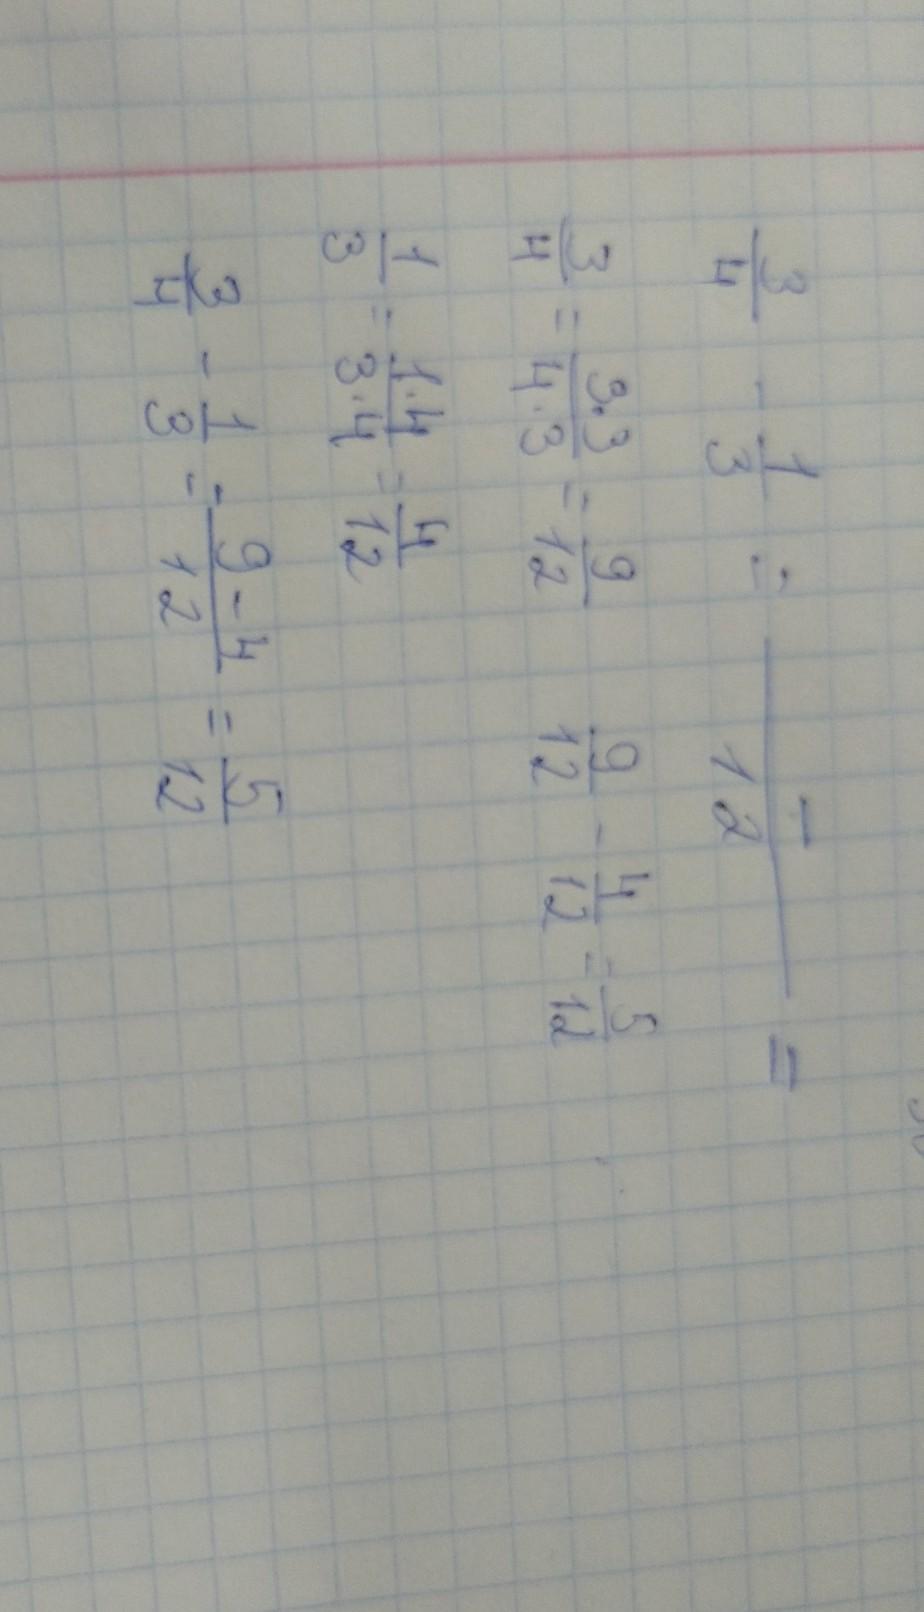 3/4 - 1/3 = -/12 =
3/4 = 3·3/4·3 = 9/12   9/12 - 4/12 = 5/12
1/3 = 1·4/3·4 = 4/12
3/4 - 1/3 = 9-4/12 = 5/12